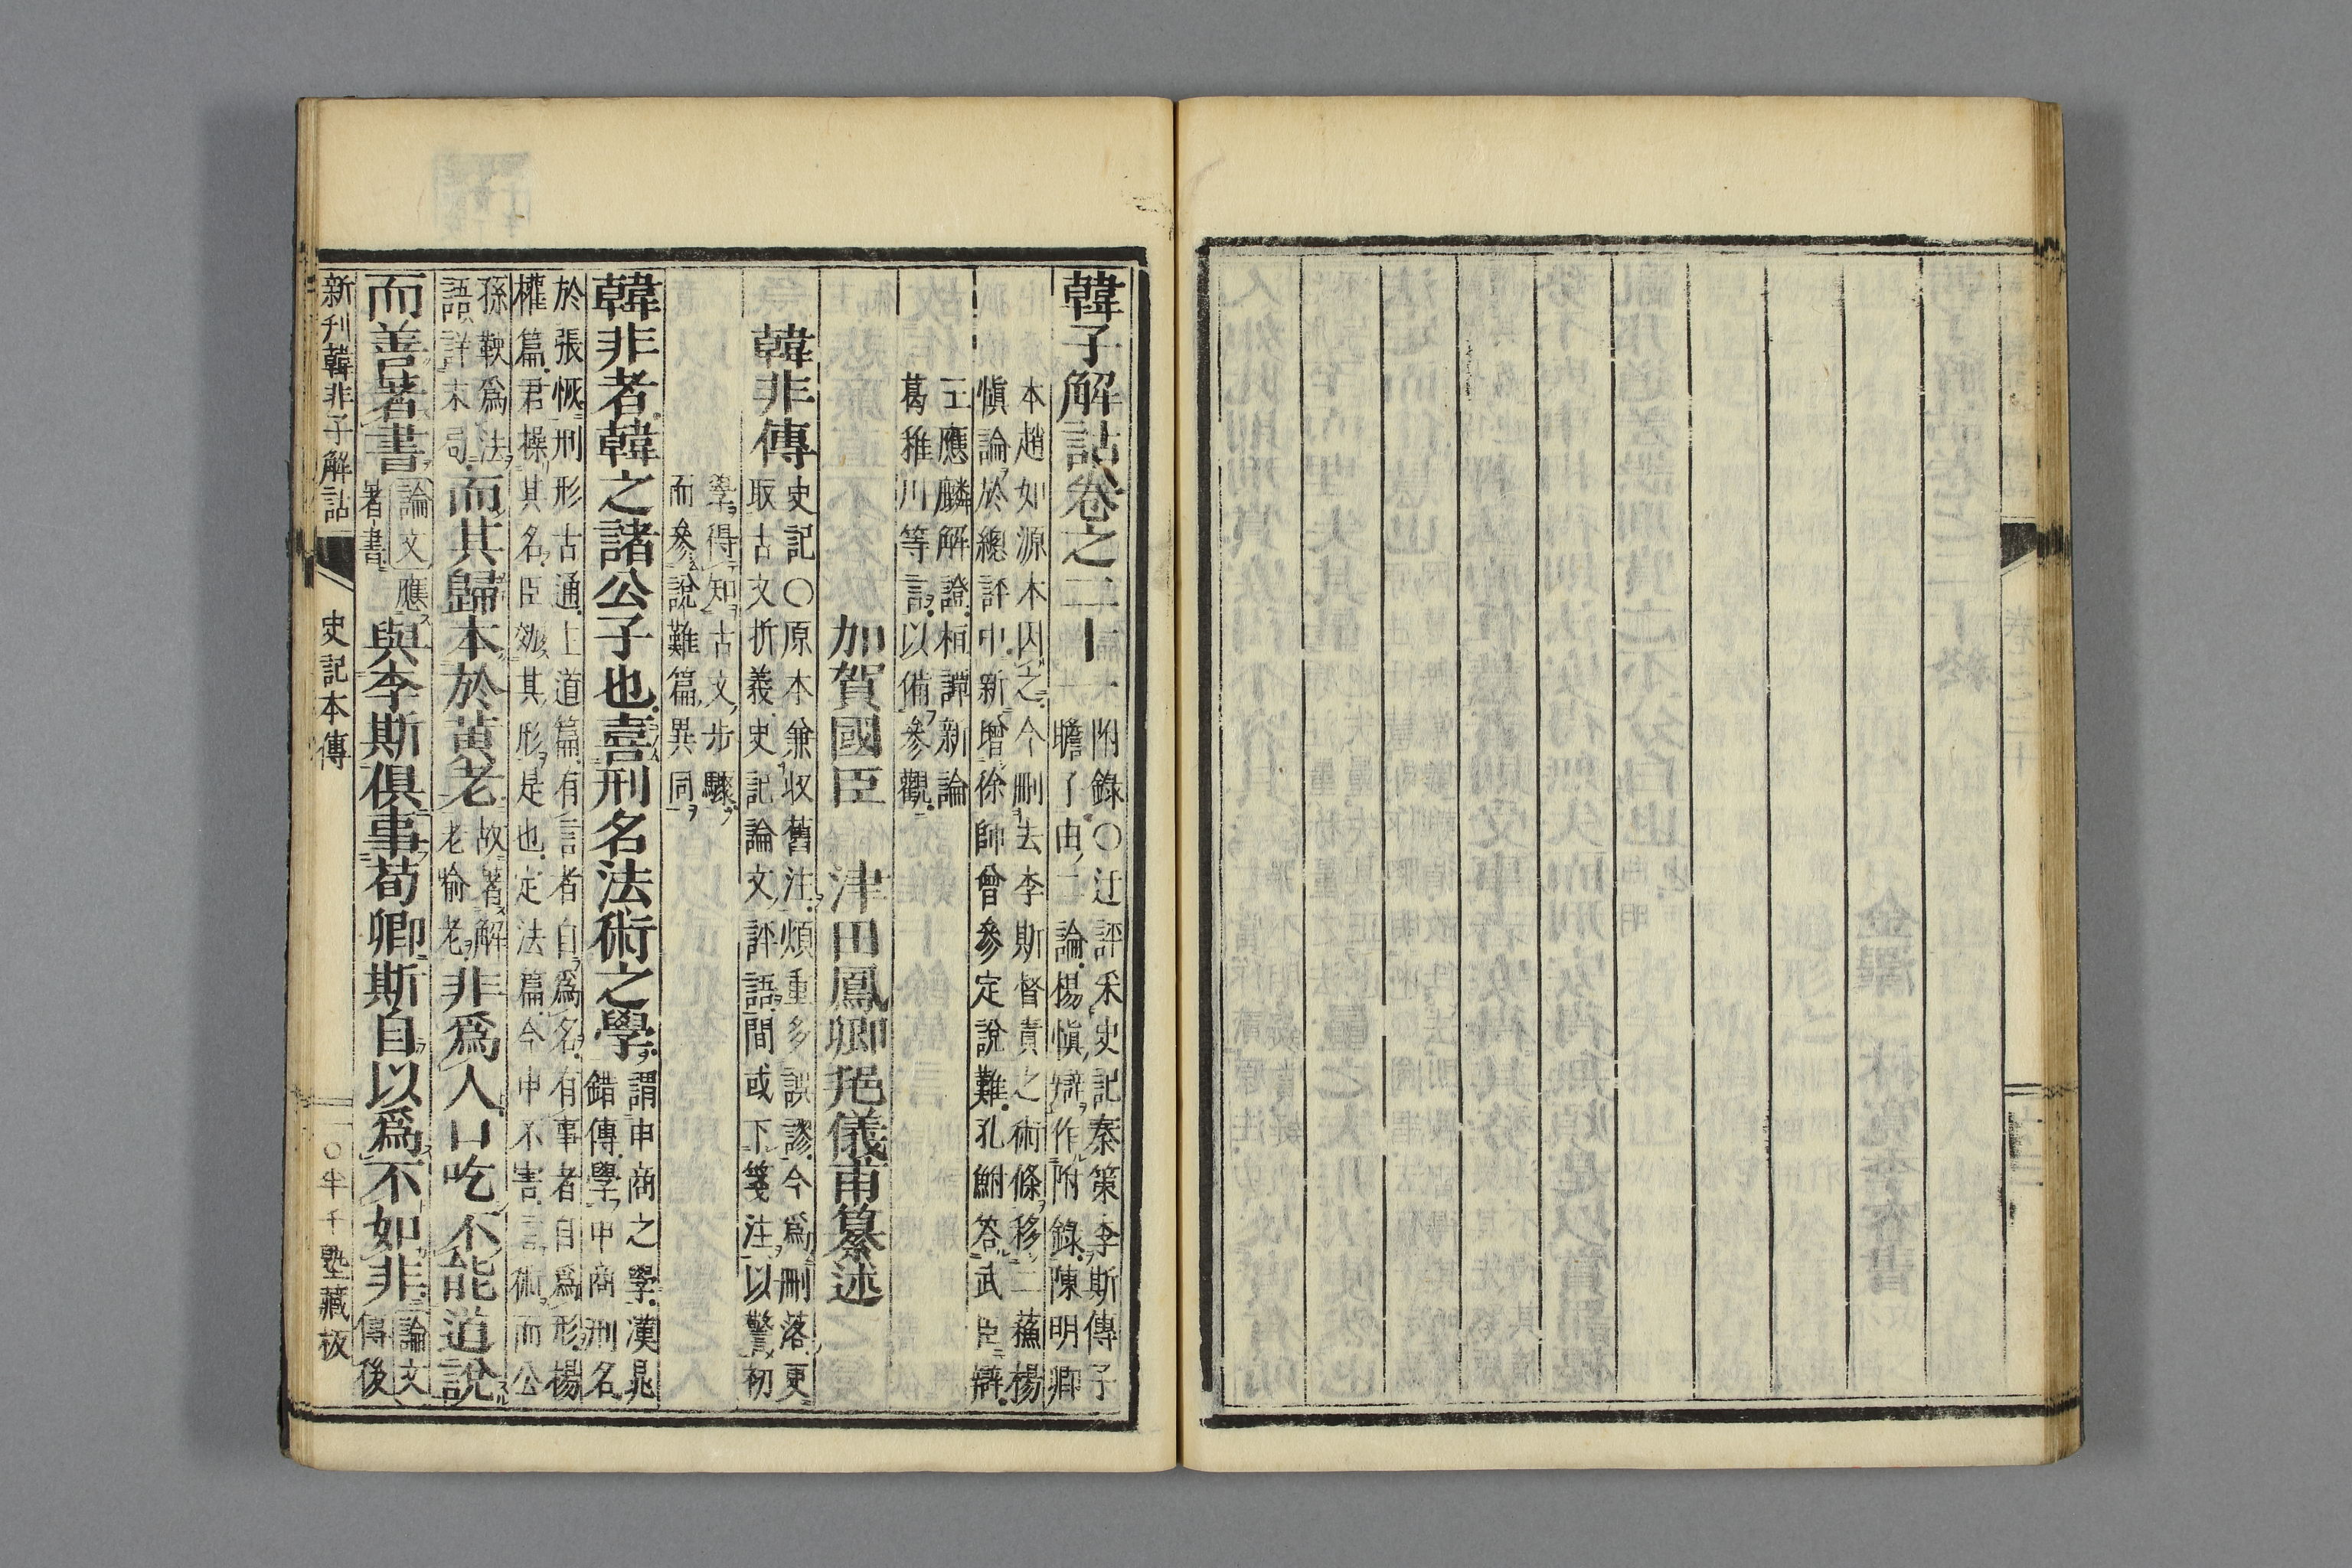 韓子解詁卷之二十一 附錄〇迂評采史記秦策李斯傳子
瞻了由二論楊愼辯作附錄陳明卿
本趙如源本因之今刪去李斯督責之術條移二蘓楊
愼論於總評中新增徐師曾參定說難孔鮒答武臣辯
王應麟解證桓譚新論
葛稚川等言以備參觀
加賀國臣 津田鳳卿 儀甫纂述
韓非傳 史記〇原本兼收舊注煩重多誤謬今爲刪落更
取古文折義史記論文評語間或下箋注以警初
學得知古文步驟
而參說難篇異同
韓非者韓之諸公子也喜刑名法術之學 謂申商之學漢晁
錯傳學申商刑名
於張恢刑形古通上道篇有言者自爲名有事者自爲形楊
權篇君操其名臣效其形是也定法篇今申不害言術而公
孫鞅爲法
語詳末 而其歸本於黃老 故著解
老喻老 非爲人口吃不能道說
而善著書 論文應
著書 與李斯俱事荀卿斯自以爲不如非 論文
傳後
新刊韓非子解詁 史記本傳 〇半千塾藏板